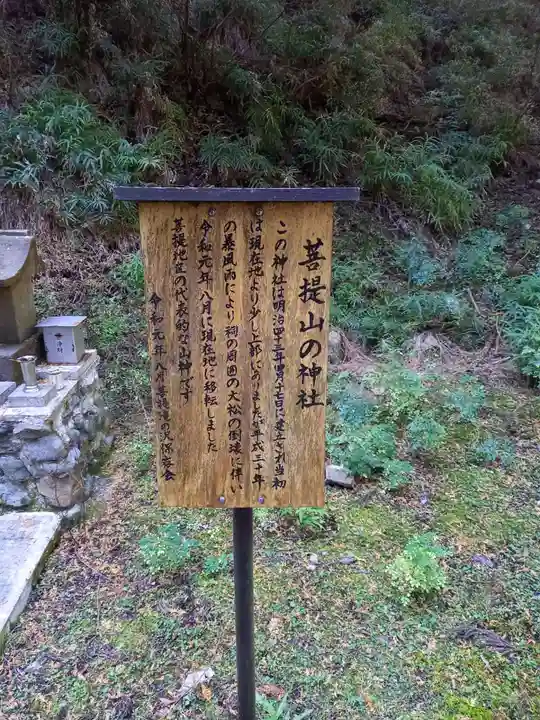 菩提山の神社
この神社は明治四十三年四月十七日に建立され当初
は現在地より少し上部にありましたが平成三十年
の暴風雨により祠の周囲の大松の倒壊に伴い
令和元年八月に現在地に移転しました
菩提地区の代表的な山神です
令和元年八月菩提滝の沢保存会